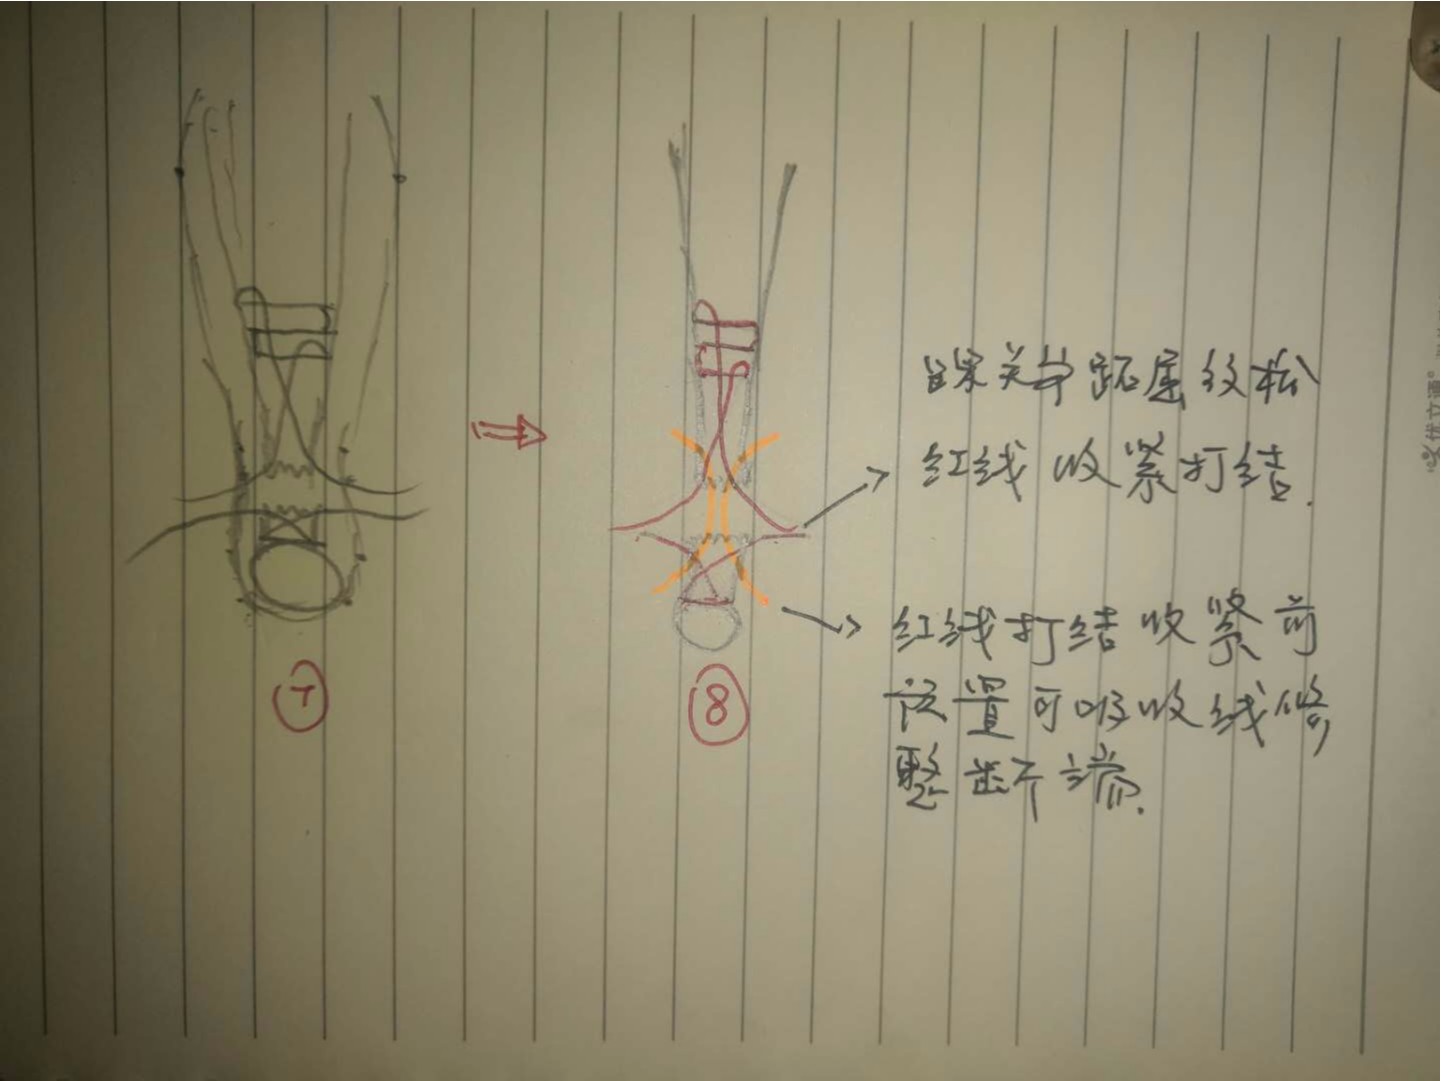 踝关节跖屈较松
红线收紧打结.
红线打结收紧前
设置可吸收线修
整断端.
⑦
⑧